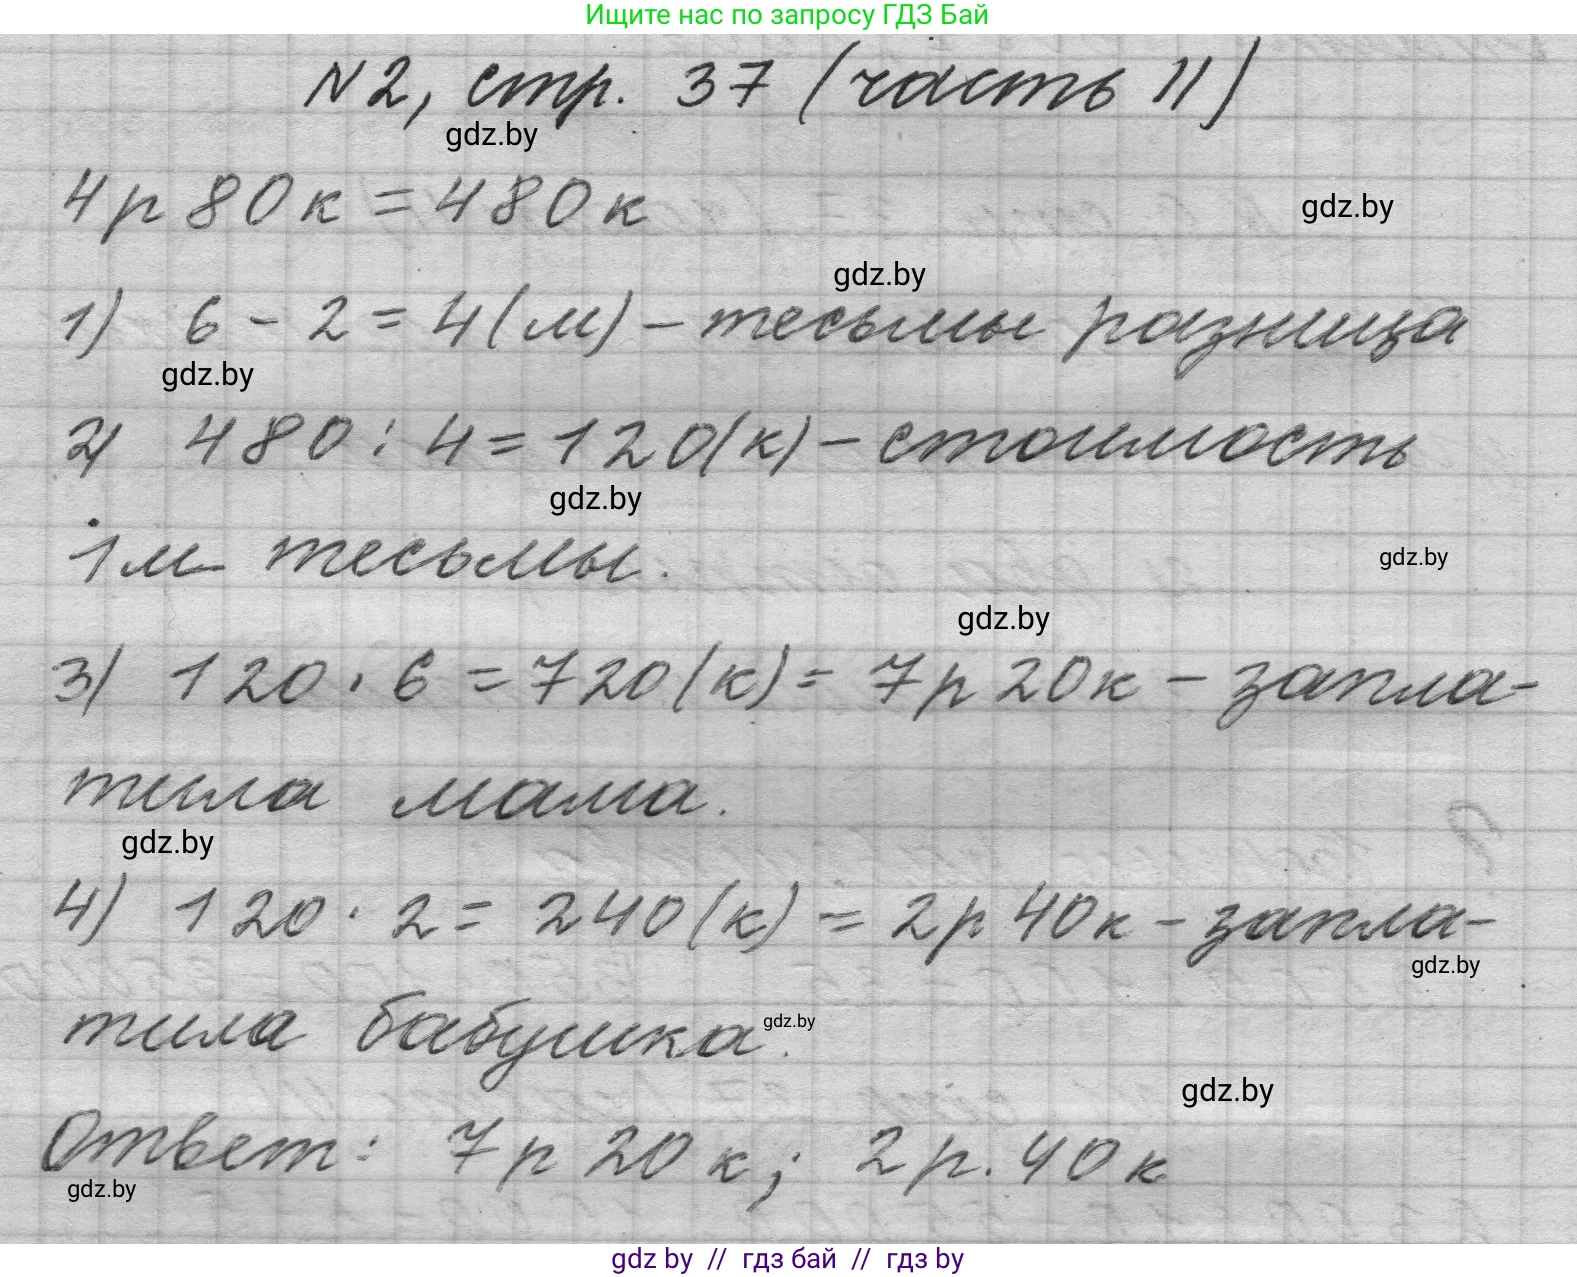 Ищите нас по запросу ГДЗ Бай
N2, стр. 37 (часть II)
gdz.by
4р 80к = 480к
gdz.by
gdz.by
1) 6 - 2 = 4(м) - тесьмы разница
gdz.by
2) 480 : 4 = 120(к) - стоимость
gdz.by
1м тесьмы.
gdz.by
gdz.by
3) 120 · 6 = 720(к) = 7р 20к - запла-
тила мама.
gdz.by
4) 120 · 2 = 240(к) = 2р 40к - запла-
gdz.by
тила бабушка.
gdz.by
gdz.by
Ответ: 7р 20 к; 2р. 40к
gdz.by
gdz by // гдз бай // гдз by